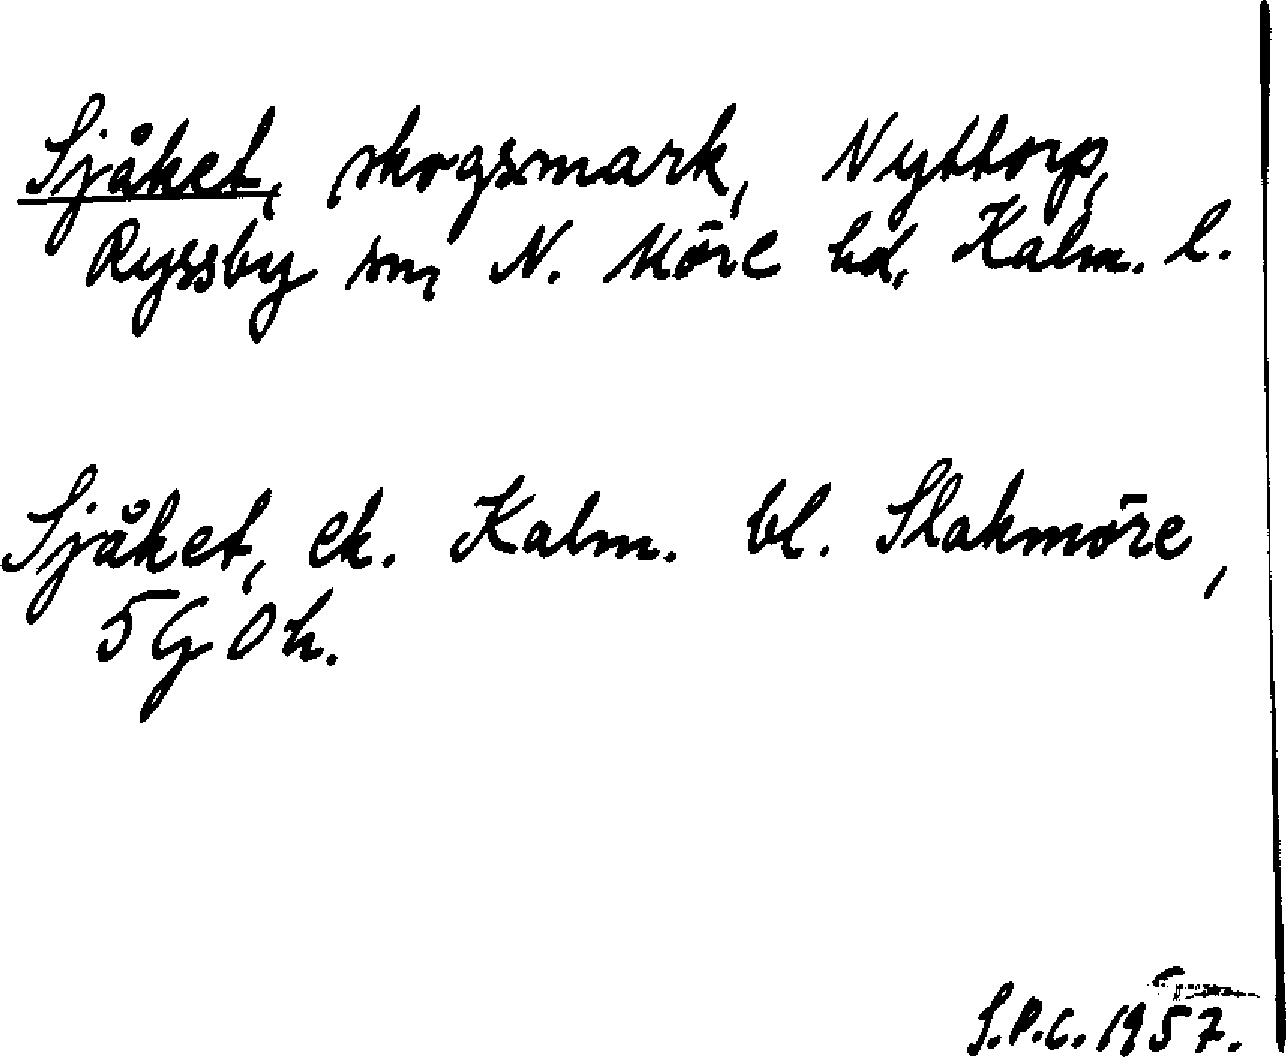 Sjåket, skogsmark, Nyttorp,
Ryssby sn, N. Möre hd, Kalm. l.
Sjåket, ek. Kalm. bl. Slakmöre,
5 G 0 h.
S.P.C. 1957.